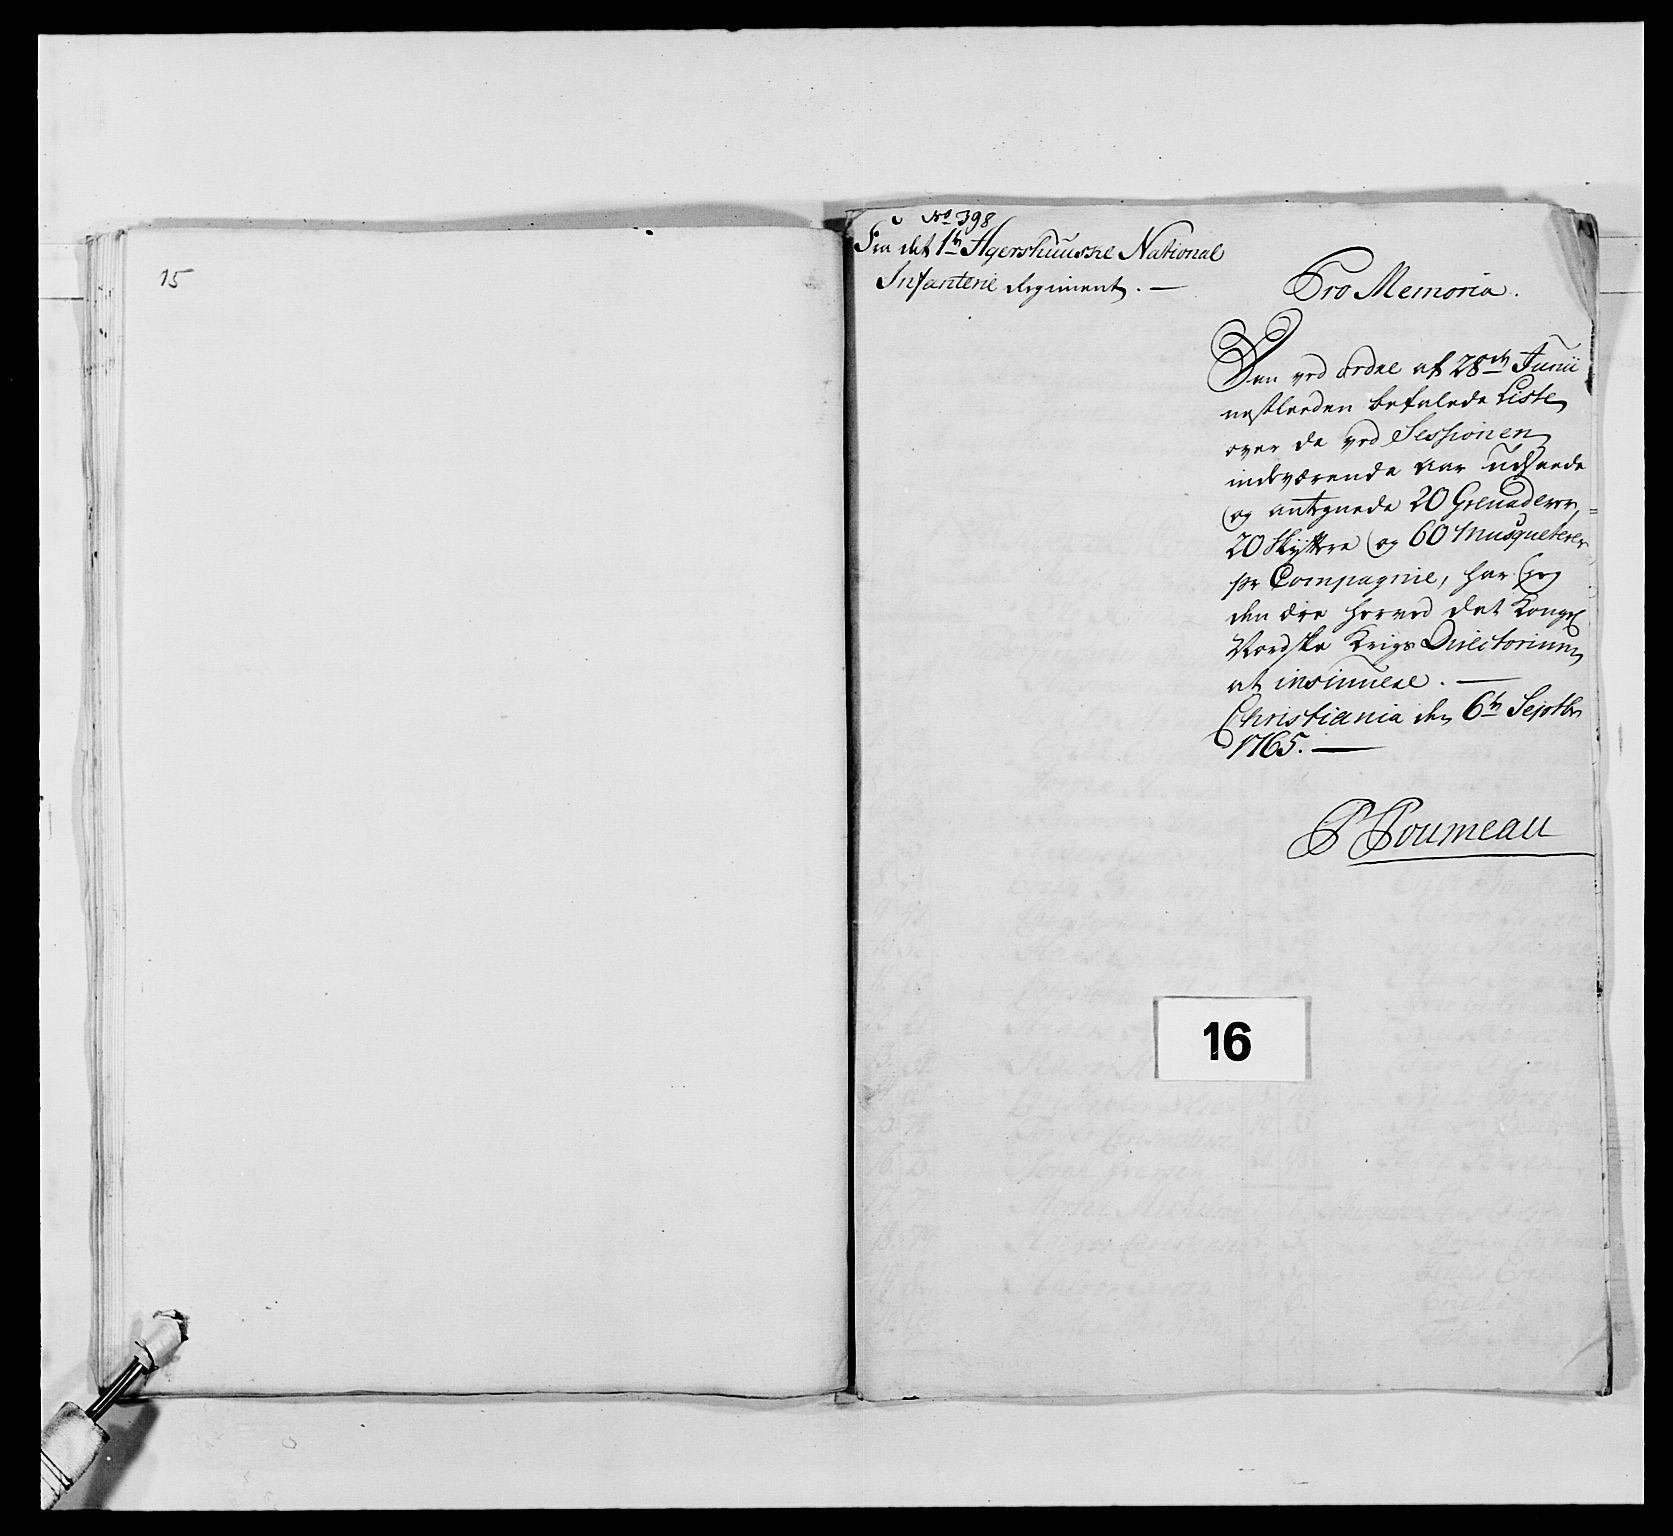 15
No 398
Fra det 1te Agershuuske National
Infanterie Regiment. —
Pro Memoria.
Den ved Ordre af 28de Junii
nestleeden befalede Liste
over de ved Sessionen
indeværende Aar udseede
og antegnede 20 Grenaderer,
20 Skyttere og 60 Musqueterer
pr Compagnie, har jeg
den ære herved det Kongel
Nordske Krigs Directorium
at insinuere. —
Christiania den 6te Septbr
1765. —
P Poumeau
16